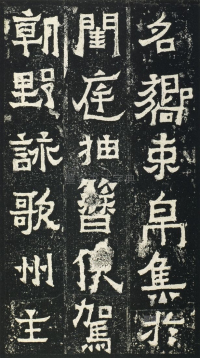 名卿束帛集於
閨庭抽簪俟駕
朝野詠歌州主